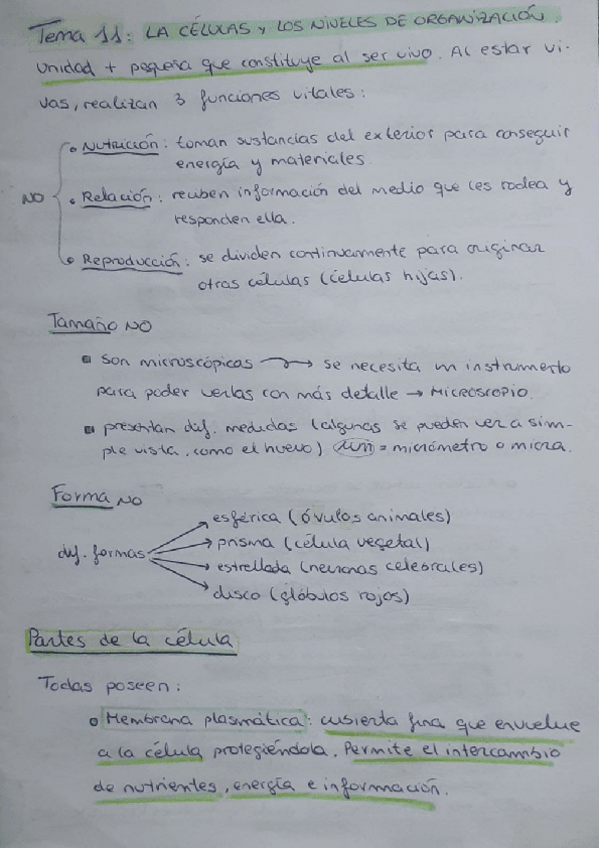 Tema 11: LA CÉLULAS Y LOS NIVELES DE ORGANIZACIÓN.
Unidad + pequeña que constituye al ser vivo. Al estar vi-
vas, realizan 3 funciones vitales:
• Nutrición: toman sustancias del exterior para conseguir
energía y materiales.
NO
• Relación: reciben información del medio que les rodea y
responden ella.
• Reproducción: se dividen continuamente para originar
otras células (células hijas).
Tamaño NO
▪ Son microscópicas → se necesita un instrumento
para poder verlas con más detalle → Microscopio.
▪ presentan dif. medidas (algunas se pueden ver a sim-
ple vista. como el huevo) µm = micrómetro o micra.
Forma NO
esférica (óvulos animales)
prisma (célula vegetal)
dif. formas
estrellada (neuronas celebrales)
disco (glóbulos rojos)
Partes de la célula
Todas poseen:
o Membrana plasmática: cubierta fina que envuelve
a la célula protegiéndola. Permite el intercambio
de nutrientes, energía e información.